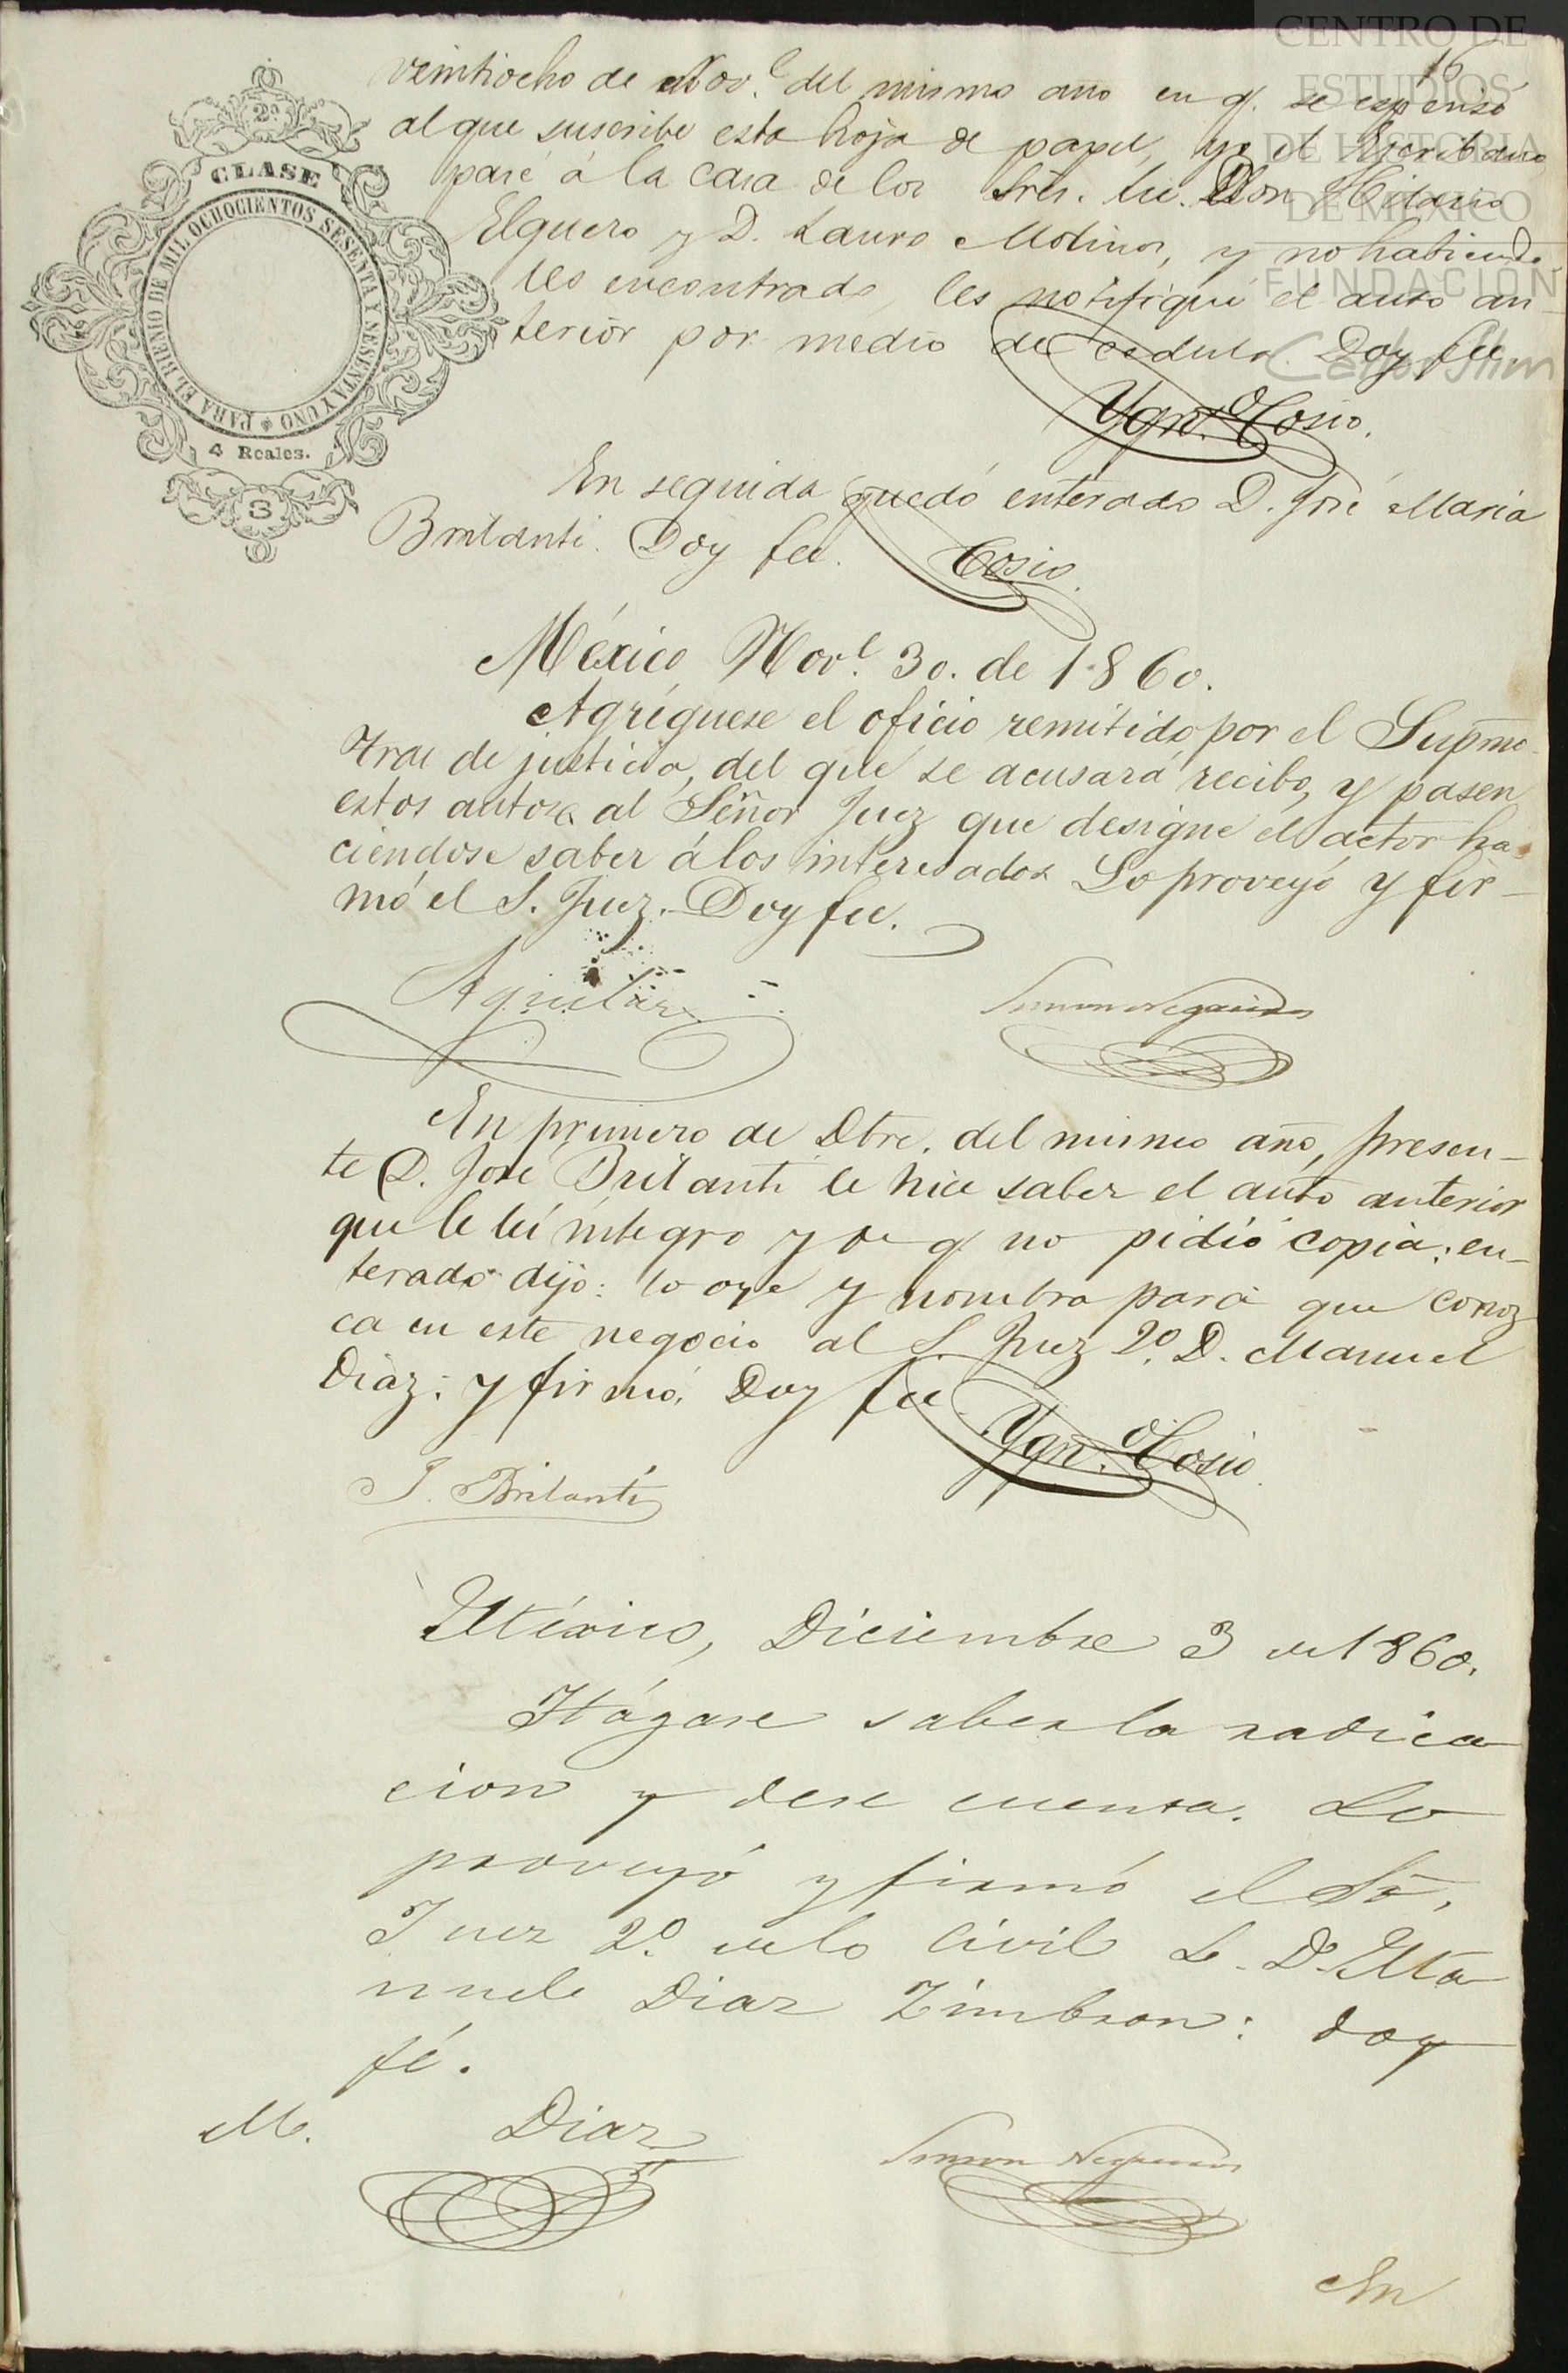 CENTRO DE
ESTUDIOS
DE HISTORIA
DE MÉXICO
FUNDACIÓN
Carlos Slim
16
2a.
CLASE
PARA EL BIENIO DE MIL OCHOCIENTOS SESENTA Y SESENTA Y UNO
4 Reales.
S
veintiocho de Nov.e del mismo año en q. se espensó
al que suscribe esta hoja de papel, yo el Escribano
pasé á la casa de los Sres. Lic. Don Hilario
Elguero y D. Lauro Molinos, y no habiendo
les encontrado, les notifiqué el auto an-
terior por medio de cedula. Doy fee
Ygn.o Cosio.
En seguida quedó enterado D. José Maria
Brilanti. Doy fee.
Cosio.
México, Nov.e 30. de 1860.
Agréguese el oficio remitido por el Supmo.
Tral de justicia, del que se acusará recibo, y pasen
estos autos al Señor Juez que designe el actor ha-
ciendose saber á los interesados Lo proveyó y fir-
mó el S. Juez. Doy fee.
Aguilar
Simon Negreiros
En primero de Dbre. del mismo año, presen-
te D. José Brilanti le hice saber el auto anterior
que le leí integro y de q. no pidió copia: en-
terado dijo: lo oye y nombra para que conoz
ca en este negocio al S. Juez 2o. D. Manuel
Diaz: y firmó. Doy fee.
Ygn.o Cosio.
J. Brilanti
México, Diciembre 3 de 1860.
Hágase saber la radica
cion y dese cuenta. Lo
proveyó y firmó el Sr.
Juez 2o. de lo Civil L. D. Ma
nuel Diaz Zimbron: doy
fé.
M.
Diaz
Simon Negreiros
En